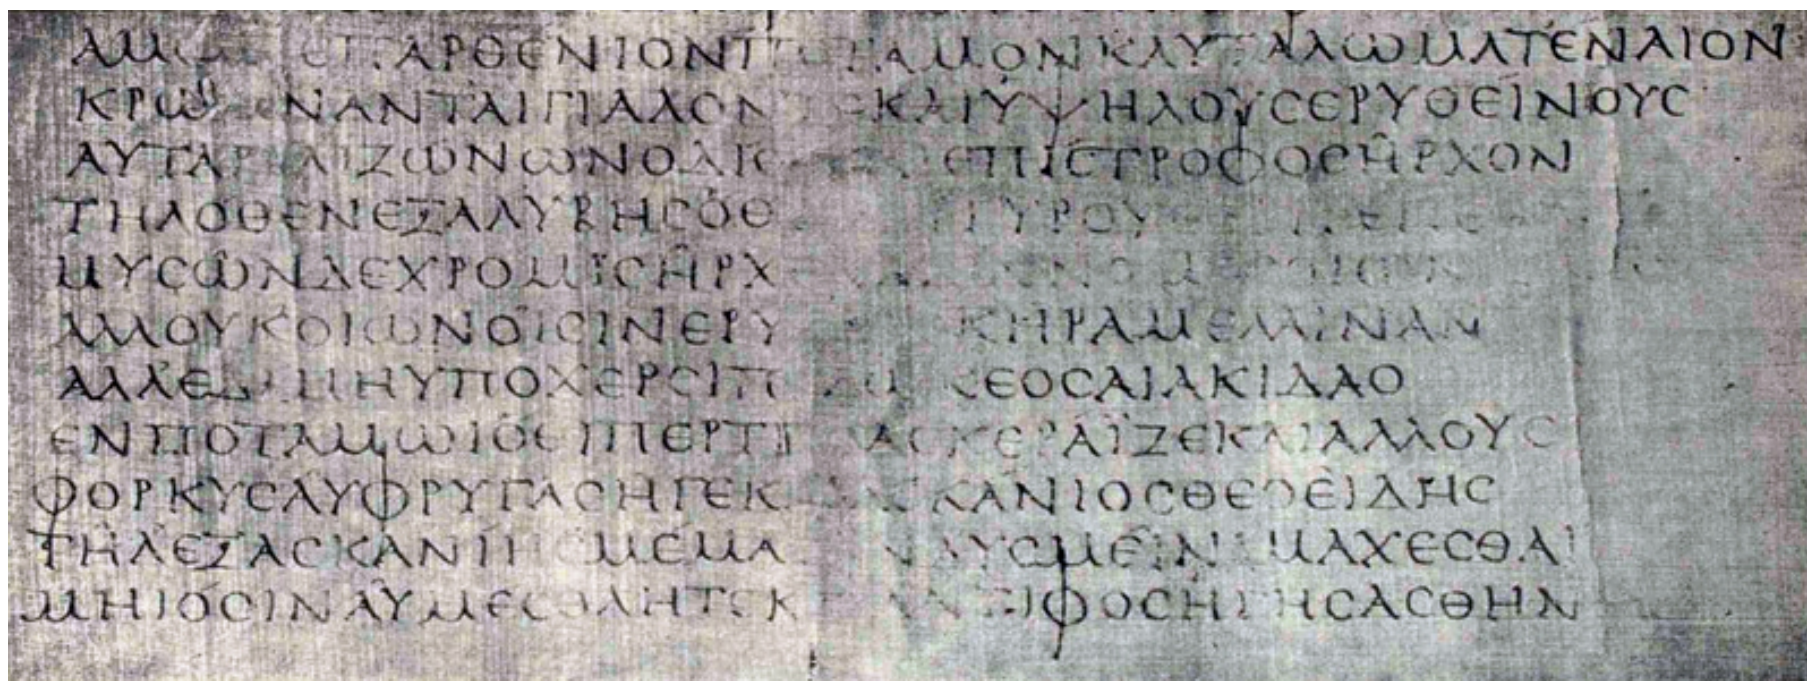 ΠΑΡΘΕΝΙΟΝΠΟΤΑΜΟΝΚΛΥΤΑΔΩΜΑΤΕΝΑΙΟΝ
ΚΡΩΜΝΑΝΤΑΙΓΙΑΛΟΝΤΕΚΑΙΥΨΗΛΟΥϹΕΡΥΘΕΙΝΟΥϹ
ΑΥΤΑΡΑΛΙΖΩΝΩΝΟΔΙ ΕΠΙϹΤΡΟΦΟϹΗΡΧΟΝ
ΤΗΛΟΘΕΝΕΞΑΛΥΒΗϹΟΘ ΡΓΥΡΟΥ
ΜΥϹΩΝΔΕΧΡΟΜΙϹΗΡΧ
ΑΛΛΟΥΚΟΙΩΝΟΙϹΙΝΕΡΥ ΚΗΡΑΜΕΛΑΙΝΑΝ
ΑΛΛΕΔΑΜΗΥΠΟΧΕΡϹΙΠΟΔΩΚΕΟϹΑΙΑΚΙΔΑΟ
ΕΝΠΟΤΑΜΩΙΟΘΙΠΕΡΤΡΩΑϹΚΕΡΑΪΖΕΚΑΙΑΛΛΟΥϹ
ΦΟΡΚΥϹΑΥΦΡΥΓΑϹΗΓΕΚΑΙΑϹΚΑΝΙΟϹΘΕΟΕΙΔΗϹ
ΤΗΛΕΞΑϹΚΑΝΙΗϹΜΕΜΑ ΥϹΜΕΙΝΙΜΑΧΕϹΘΑΙ
ΜΗΙΟϹΙΝΑΥΜΕϹΘΛΗΤΕΚ ΑΝΤΙΦΟϹΗΓΗϹΑϹΘΗΝ